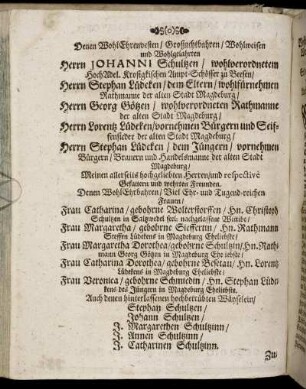 Denen WohlEhrenvesten / Großachtbahren / Wohlweisen
und Wohlgelahrten
Herrn JOHANNI Schultzen / wohlverordnetem
HochAdel. Krosigkischen Ampt-Schösser zu Beesen /
Herrn Stephan Lüdeken / dem Eltern / wohlfürnehmen
Rathmanne der alten Stadt Magdeburg /
Herrn Georg Götzen / wohlverordneten Rathmanne
der alten Stadt Magdeburg /
Herrn Lorentz Lüdeken / vornehmen Bürgern und Seif-
fensieder der alten Stadt Magdeburg /
Herrn Stephan Lüdeken / dem Jüngern / vornehmen
Bürgern / Brauern und Handelsmanne der alten Stadt
Magdeburg /
Meinen allerseits hochgeliebten Herren / und respectivè
Gefattern und wehrten Freunden.
Denen WohlEhrbahren / Viel Ehr- und Tugend-reichen
Frauen /
Frau Catharina / gebohrne Wolterstorffen / Hn. Christoph
Schultzen in seel. nachgelassene Wittibe /
Frau Margaretha / gebohrne Sieffertin / Hn. Rathmann
Steffen Lüdekens in Magdeburg Eheliebste /
Frau Margaretha Dorothea / gebohrne Schultzen / Hn. Rath-
mann Georg Götzen in Magdeburg Eheliebste /
Frau Catharina Dorothea / gebohrne Besetau / Hn. Lorentz
Lüdekens in Magdeburg Eheliebste /
Frau Veronica / gebohrne Schmiedin / Hn. Stephan Lüde-
kens des Jüngern in Magdeburg Eheliebste.
Auch denen hinterlassenen hochbetrübten Wäyselein /
Stephan Schultzen /
Johann Schultzen /
J. Margarethen Schultzinn /
J. Annen Schultzinn /
J. Catharinen Schultzinn.
Zu